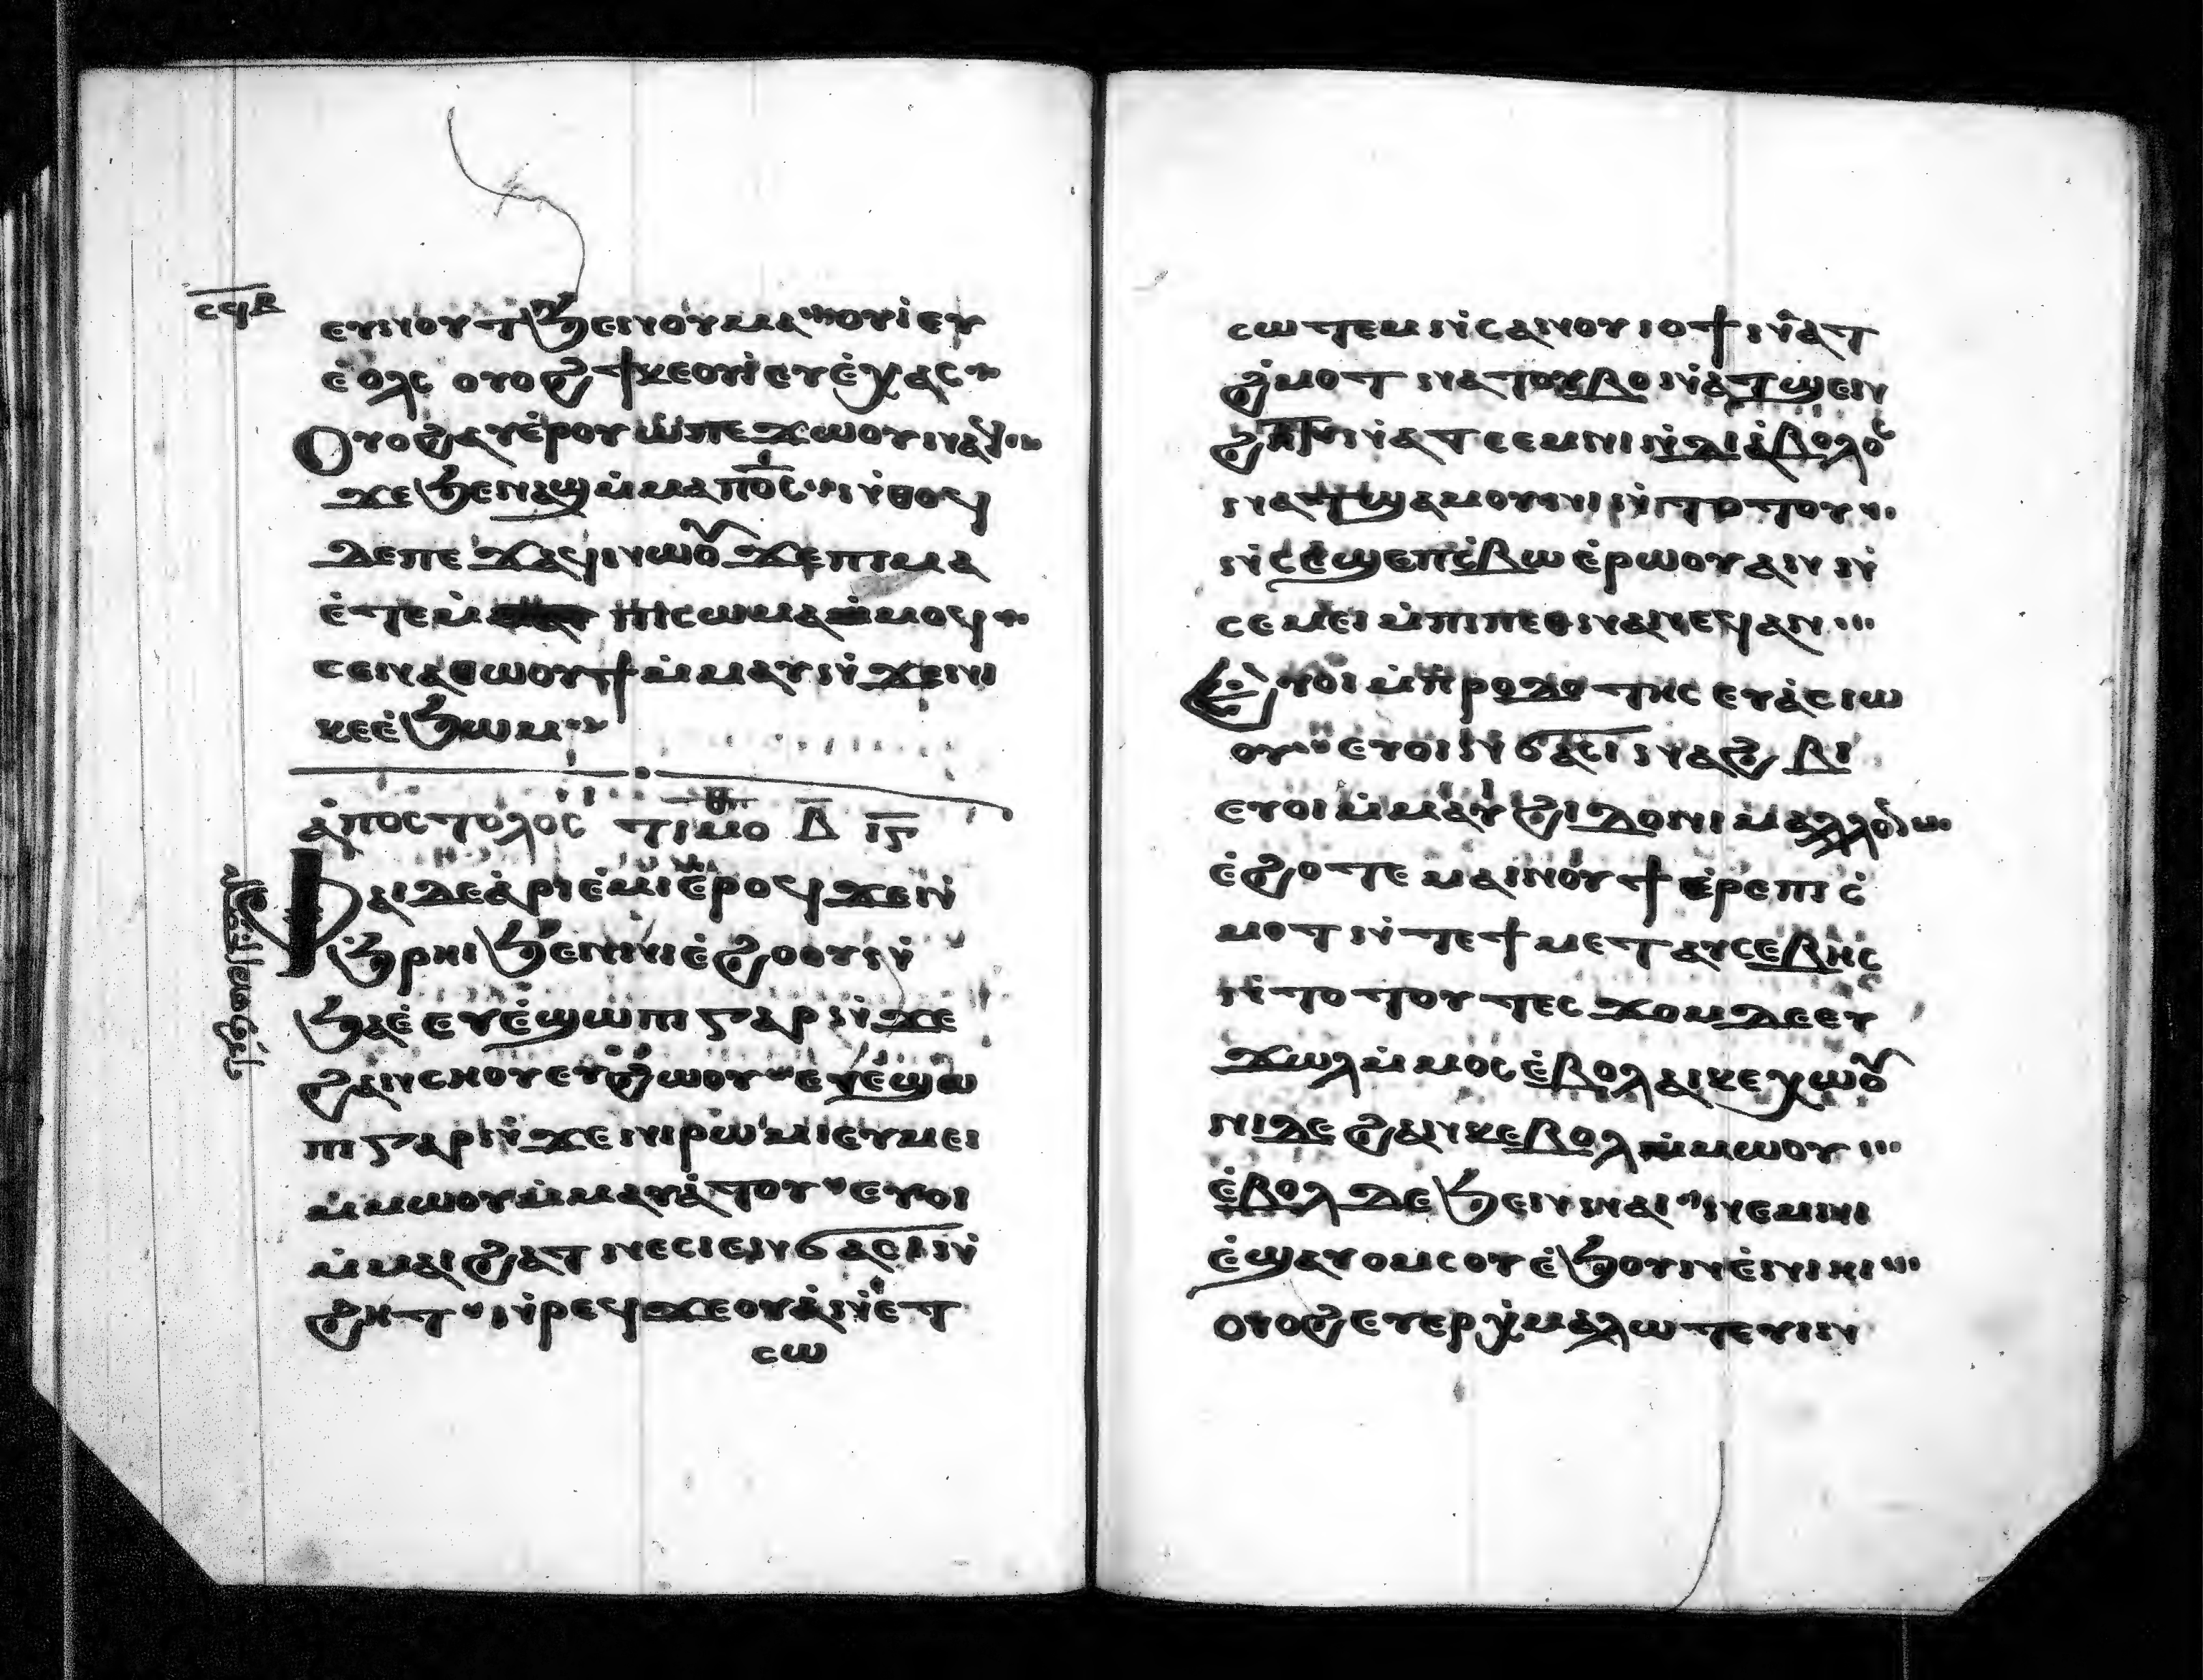 ⲥϥⲃ
ⲉⲩⲛⲟⲩⲧ ϧⲉⲛ ⲟⲩⲙⲁ ⲟⲩⲓ̀ ⲉⲩ
ⲉ̀ⲟⲗⲥ ⲟⲩⲟϩ ϯⲕⲉⲟⲩⲓ̀ ⲉⲩⲉ̀ⲭⲁⲥ
Ⲟⲩⲟϩ ⲁⲩⲉ̀ⲣⲟⲩⲱ̀ ⲡⲉϫⲱⲟⲩ ⲛⲁϥ
ϫⲉ ϧⲉⲛ ⲁϣ ⲙ̀ⲙⲁ ⲡⲪⲤ ⲛ̀ⲑⲟϥ
ⲇⲉ ⲡⲉϫⲁϥ ⲛⲱⲟⲩ ϫⲉ ⲡⲓⲙⲁ
ⲉ̀ⲧⲉ ⲡⲓⲥⲱⲙⲁ ⲙ̀ⲙⲟϥ
ⲥⲉⲛⲁⲑⲱⲟⲩϯ ⲙ̀ⲙⲁⲩ ⲛ̀ϫⲉⲛⲓ
ⲕⲉⲉ̀ϧⲱⲙ
ⲁ̀ⲡⲟⲥⲧⲟⲗⲟⲥ ⲧⲓⲙⲟ ⲃ̅ ⲓ̅ⲋ̅
Ⲫⲁⲓ ⲇⲉ ⲁ̀ⲣⲓⲉ̀ⲙⲓ ⲉ̀ⲣⲟϥ ϫⲉ ⲛ̀
ϧ̀ⲣⲏⲓ ϧⲉⲛ ⲛⲓⲉ̀ϩⲟⲟⲩ ⲛ̀
ϧⲁⲉ̀ ⲉⲩⲉ̀ϣⲱⲡⲓ ⲅⲁⲣ ⲛ̀ϫⲉ
ϩⲁⲛⲥⲏⲟⲩ ⲉⲩϩⲱⲟⲩ ⲉⲩⲉ̀ϣⲱ
ⲡⲓ ⲅⲁⲣ ⲛ̀ϫⲉ ⲛⲓⲣⲱⲙⲓ ⲉⲩⲙⲉⲓ
ⲙ̀ⲙⲱⲟⲩ ⲙ̀ⲙⲁⲩⲁ̀ⲧⲟⲩ ⲉⲩⲟⲓ
ⲙ̀ⲙⲁⲓϩⲁⲧ ⲛⲉⲥⲓⲉⲛ ϭⲁⲥⲓ ⲛ̀
ϩⲏⲧ ⲛ̀ⲣⲉϥϫⲉⲟⲩⲁ̀ ⲛ̀ⲉⲧ
ⲥⲱ
ⲥⲱⲧⲉⲙ ⲛ̀ⲥⲁⲛⲟⲩⲓⲟϯ ⲛ̀ⲁⲧ
ϩ̀ⲙⲟⲧ ⲛⲁⲧⲟⲩⲃⲟ ⲛ̀ⲁⲧϣⲉⲛ
ϩⲏⲧ ⲛ̀ⲁⲧⲥⲉⲙⲛⲓ ⲛ̀ⲇⲓⲁ̀ⲃⲟⲗⲟⲥ
ⲛⲁⲧϣⲁⲙⲟⲩⲛⲓ ⲛ̀ⲧⲟⲧⲟⲩ
ⲛ̀ⲥⲉϣⲉⲡ ⲥ̀ⲃⲱ ⲉ̀ⲣⲱⲟⲩ ⲁⲛ ⲛ̀
ⲥⲉⲙⲉⲓ ⲙ̀ⲡⲓⲡⲉⲑⲛⲁⲛⲉϥ ⲁⲛ
Ⲉⲩⲟⲓ ⲙ̀ⲡ̀ⲣⲟⲇⲟⲧⲏⲥ ⲉⲩⲁ̀ⲥⲓⲱ
ⲟⲩ ⲉⲩⲟⲓ ⲛ̀ϭⲁⲥⲓⲛⲁϩⲃⲓ
ⲉⲩⲟⲓ ⲙ̀ⲙⲁⲓϩⲓⲇⲟⲛⲓ ⲙⲁⲗⲗⲟⲛ
ⲉ̀ϩⲟⲧⲉ ⲙⲁⲓⲛⲟⲩϯ ⲉ̀ⲣⲉ ⲡⲓⲥ̀
ⲙⲟⲧ ⲛ̀ⲧⲉ ϯⲙⲉⲧⲁⲩⲥⲉⲃⲏⲥ
ⲛ̀ⲧⲟⲧⲟⲩ ⲧⲉⲥϫⲟⲙ ⲇⲉ ⲉⲩ
ϫⲱⲗ ⲙ̀ⲙⲟⲥ ⲉ̀ⲃⲟⲗ ⲁⲓⲕⲉⲭⲱⲟⲩ
ⲛⲓ ⲇⲉ ϩⲁⲛⲕⲉⲃⲟⲗ ⲙ̀ⲙⲱⲟⲩ
ⲉ̀ⲃⲟⲗ ⲇⲉ ϧⲉⲛ ⲛⲁⲓ ⲛⲉ ⲙⲛⲏ
ⲉ̀ϣⲁⲩⲟⲙⲥⲟⲩ ⲉ̀ϧⲟⲩⲛ ⲉ̀ⲛⲓⲏⲓ
ⲟⲩⲟϩ ⲉⲩⲉⲣⲭ̀ⲙⲁⲗⲱⲧⲉⲩⲓⲛ